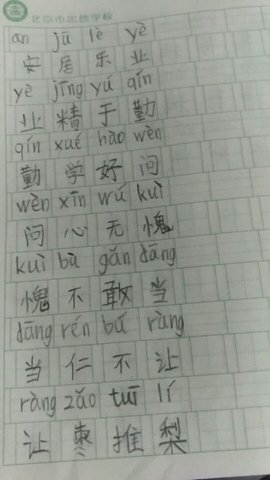 北京市忠德学校
ān jū lè yè
安居乐业
yè jīng yú qín
业精于勤
qín xué hào wèn
勤学好问
wèn xīn wú kuì
问心无愧
kuì bù gǎn dāng
愧不敢当
dāng rén bú ràng
当仁不让
ràng zǎo tuī lí
让枣推梨